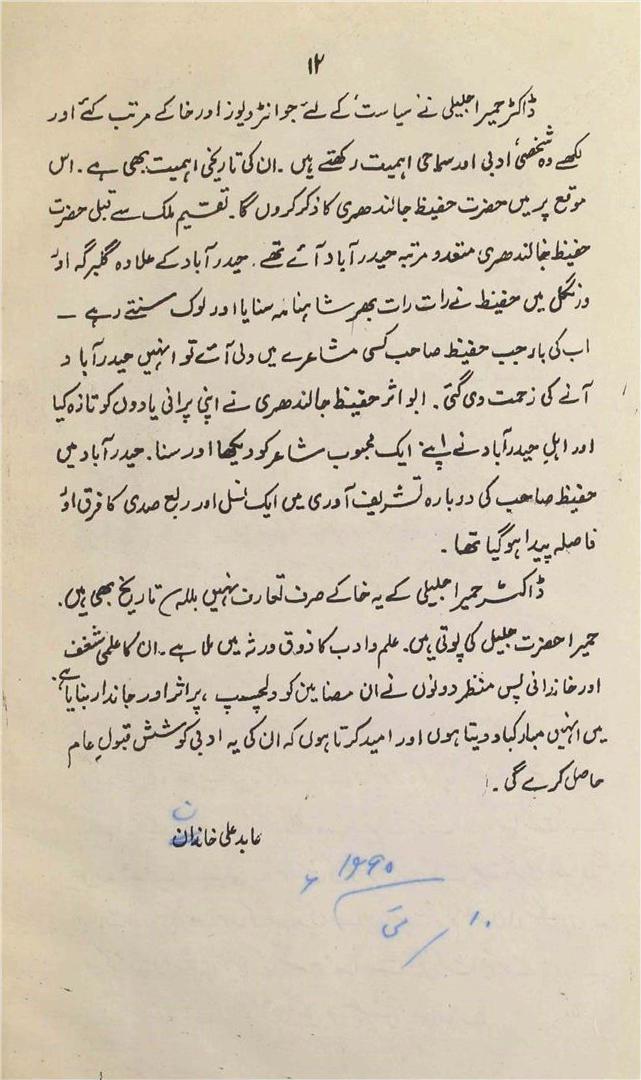 ۱۲
ڈاکٹر حمیرا جلیلی نے ’سیاست‘ کے لئے جو انٹرویوز اور خاکے مرتب کئے اور
لکھے وہ شخصی ادبی اور سماجی اہمیت رکھتے ہیں ۔ ان کی تاریخی اہمیت بھی ہے ۔ اس
موقع پر میں حضرت حفیظ جالندھری کا ذکر کروں گا ۔ تقسیم ملک سے قبل حضرت
حفیظ جالندھری متعدد مرتبہ حیدرآباد آئے تھے ۔ حیدرآباد کے علاوہ گلبرگہ اور
ورنگل میں حفیظ نے رات رات بھر شاہنامہ سنایا اور لوگ سنتے رہے ۔
اب کی بار جب حفیظ صاحب کسی مشاعرے میں دلی آئے تو انہیں حیدرآباد
آنے کی زحمت دی گئی ۔ ابوالاثر حفیظ جالندھری نے اپنی پرانی یادوں کو تازہ کیا
اور اہلِ حیدرآباد نے اپنے ایک محبوب شاعر کو دیکھا اور سنا ۔ حیدرآباد میں
حفیظ صاحب کی دوبارہ تشریف آوری میں ایک نسل اور ربع صدی کا فرق اور
فاصلہ پیدا ہوگیا تھا ۔
ڈاکٹر حمیرا جلیلی کے یہ خاکے صرف تعارف نہیں بلکہ تاریخ بھی ہیں ۔
حمیرا حضرت جلیل کی پوتی ہیں ۔ علم و ادب کا ذوق ورثہ میں ملا ہے ۔ ان کا علمی شغف
اور خاندانی پس منظر دونوں نے ان مضامین کو دلچسپ ، پراثر اور جاندار بنایا ہے ۔
میں انہیں مبارکباد دیتا ہوں اور امید کرتا ہوں کہ ان کی یہ ادبی کوشش قبولِ عام
حاصل کرے گی ۔
عابد علی خان
۱۹۹۰ء
۱۰ مئی